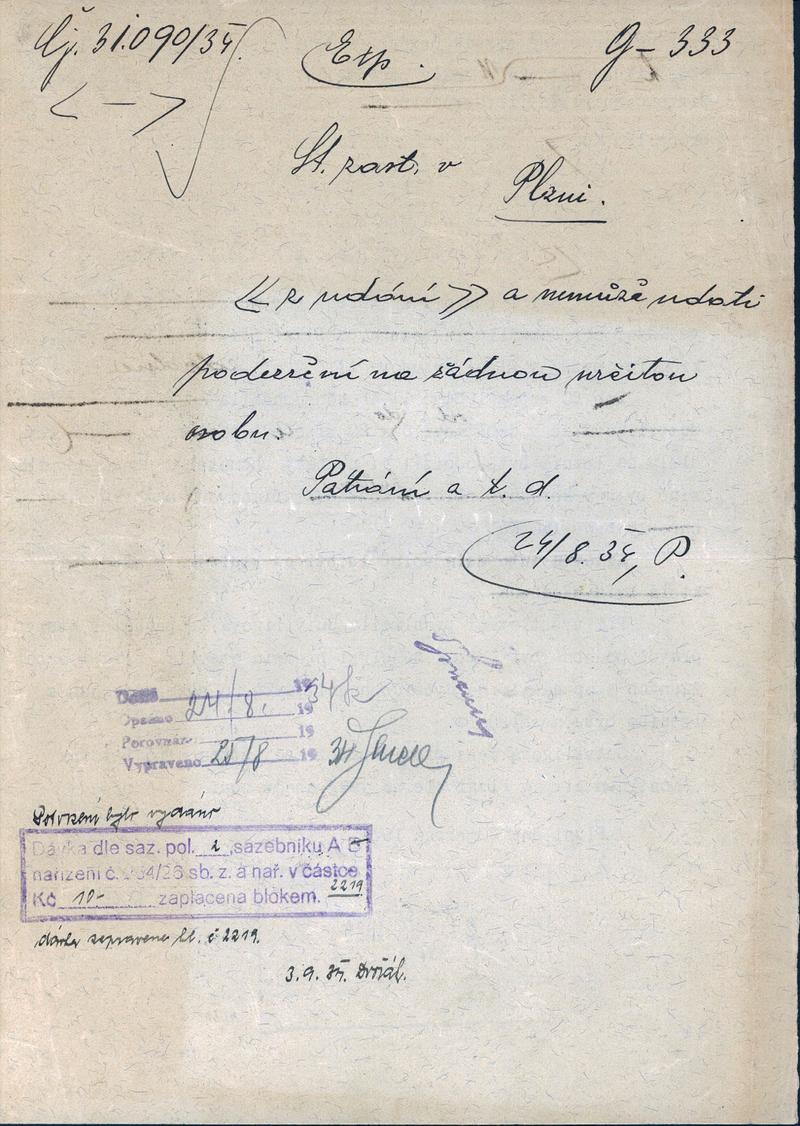 Čj. 31.090/34 Exp. G-333
< — >
St. zast. v
Plzni.
<< z udání >> a nemůže udati
podezření na žádnou určitou
osobu.
Pátrání a t. d.
24/8. 34, P.
Došlo 19
Opsáno 24/8. 1934
Porovnán. 19
Vypraveno 25/8 1934
Potvrzení bylo vydáno
Dávka dle saz. pol. 2 sazebníku A B
nařízení č. 204/26 sb. z. a nař. v částce
Kč 10- zaplacena blokem. 2219
dávka zapravena bl. č 2219.
3.9.34.